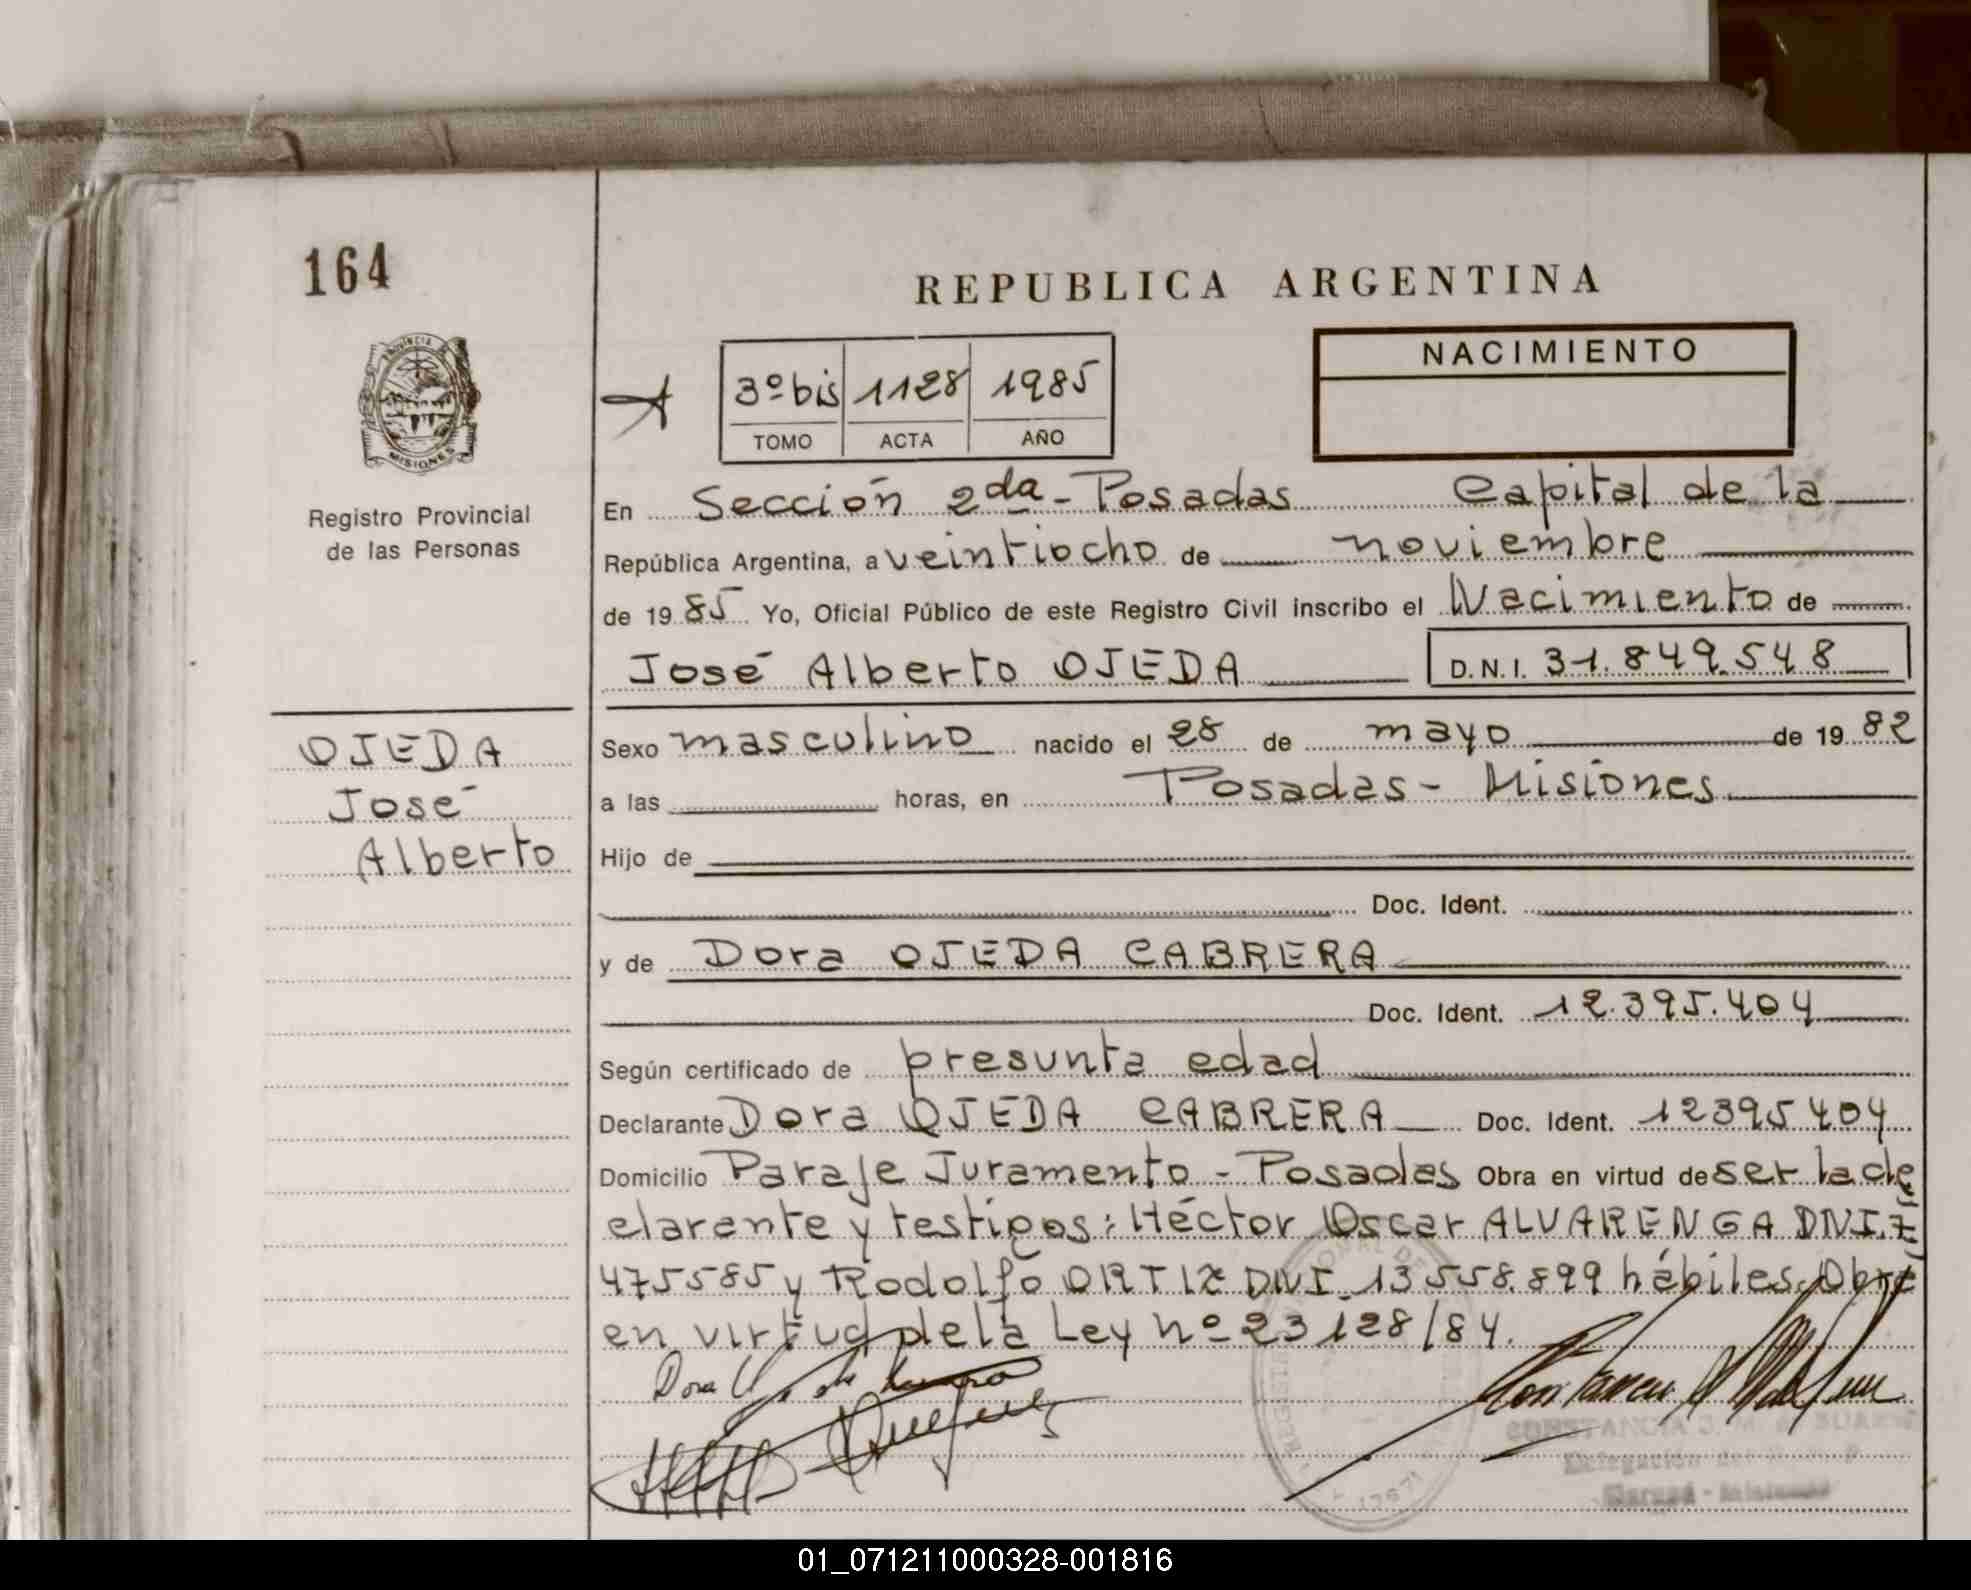 164
REPUBLICA ARGENTINA
PROVINCIA
MISIONES
Registro Provincial
de las Personas
3º bis 1128 1985
TOMO ACTA AÑO
NACIMIENTO
En Sección 2da - Posadas Capital de la
República Argentina, a veintiocho de noviembre
de 1985 Yo, Oficial Público de este Registro Civil inscribo el Nacimiento de
José Alberto OJEDA D.N.I. 31.849.548
OJEDA
José
Alberto
Sexo masculino nacido el 28 de mayo de 1982
a las horas, en Posadas - Misiones
Hijo de
Doc. Ident.
y de Dora OJEDA CABRERA
Doc. Ident. 12.395.404
Según certificado de presunta edad
Declarante Dora OJEDA CABRERA Doc. Ident. 12395404
Domicilio Paraje Juramento - Posadas Obra en virtud de ser la de
clarente y testigos: Héctor Oscar ALVARENGA DNI. 7.
475585 y Rodolfo ORTIZ DNI. 13.558.899 hábiles. Obra
en virtud de la Ley nº 23128/84.
Dora
CONSTANCIA
Delegación
01_071211000328-001816